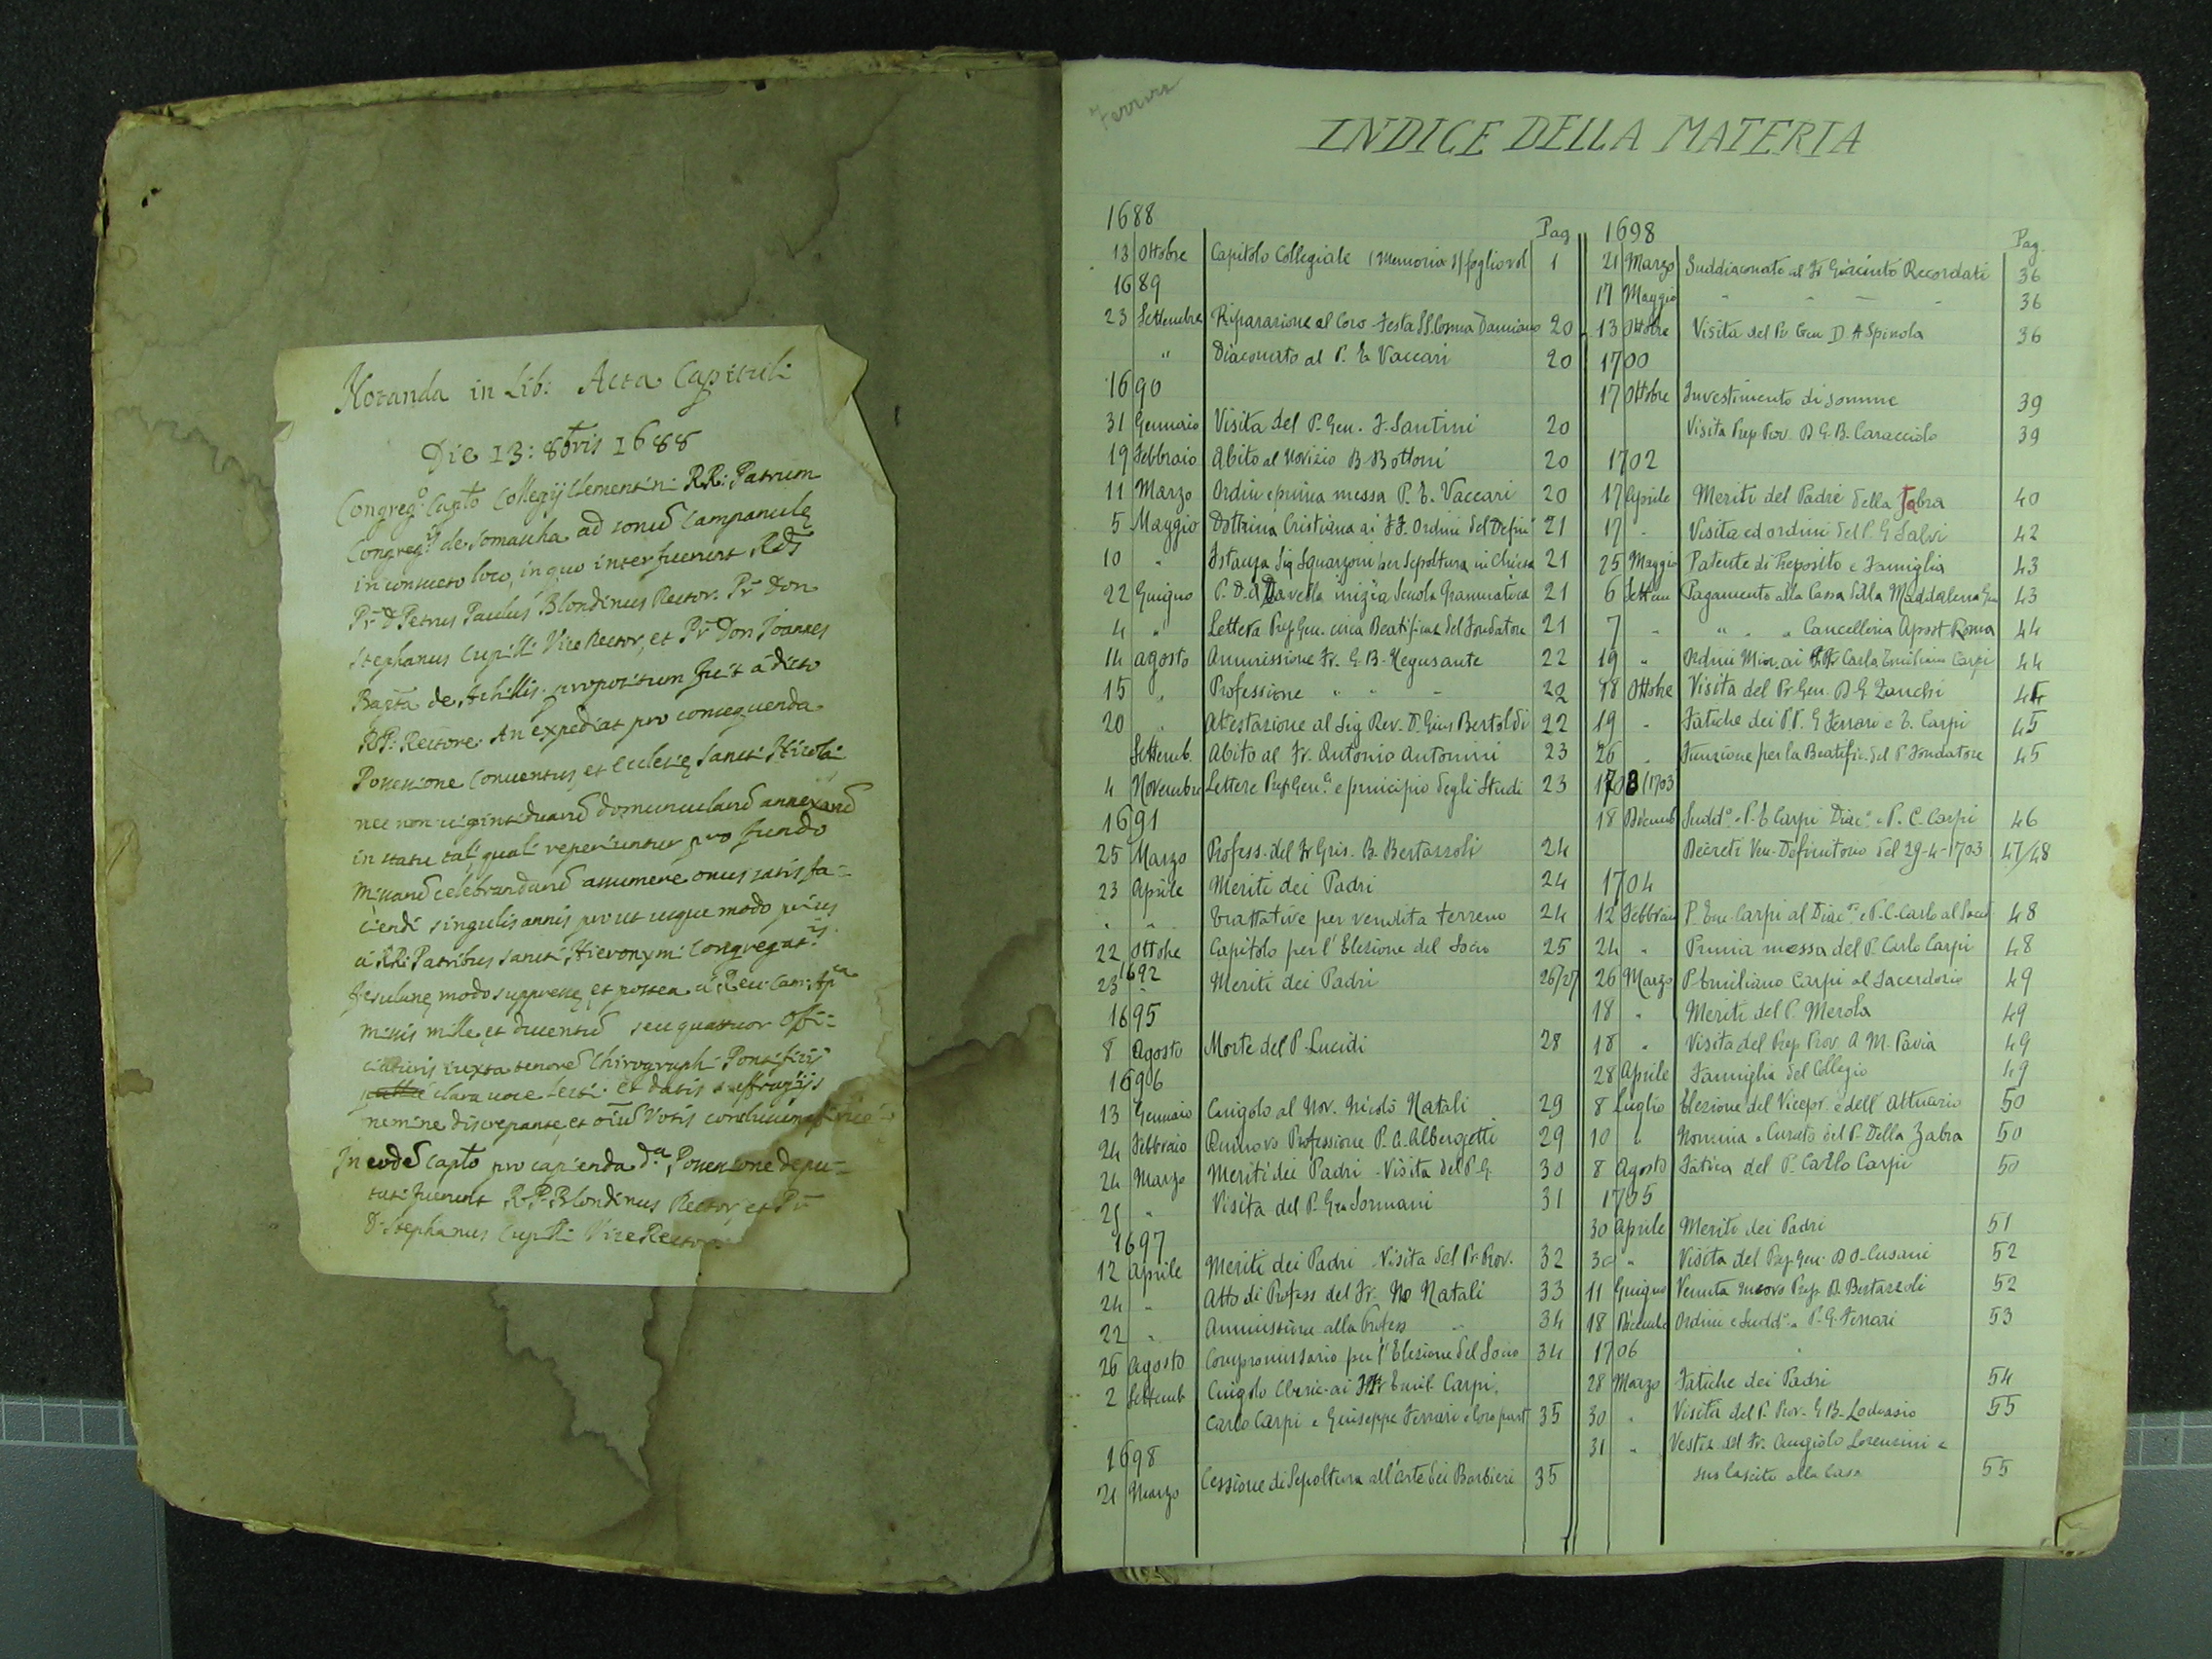 Notanda in Lib: Acta Capituli
Die 13: 8bris 1688
Congreg.º Capto Collegij Clementini RR: Patrum
Congreg.is de Somascha ad sonu campanulę
in consueto loco, in quo interfuerunt Rds
Pr D Petrus Paulus Blondinus Rector. Pr Don
Stephanus Cupilli Vice Rector, et Pr Don Joannes
Bapta de Achillis. propositum fuit a dicto
RP: Rectore. An expediat pro consequenda
Possessione Conventus et Ecclesię Sancti Nicolai
nec non viginti duarū domuncularū annexarū
in statu tali quali reperiuntur pro fundo
Missarū celebrandarū assumere onus satisfa-
ciendi singulis annis prout usque modo prius
a RR: Patribus Sancti Hieronymi Congregat.is
Fesulanę modo suppressę et postea a Reu: Cam: Apca
missis mille et ducentis seu quattuor
iuxta tenorē Chirographi Pontificis
clara voce lecti. et datis suffragijs
nemine discrepante, et oiū Votis
In eodē Capto pro capienda d.a Possessione depu-
tati fuerunt R. P. Blondinus Rector, et Pr
D. Stephanus Cupilli Vice Rector.
Ferrara
INDICE DELLA MATERIA
1688 Pag
13 Ottobre Capitolo Collegiale (Memoria 1/foglio vol 1
1689
23 Settembre Riparazione al Coro - Festa SS. Cosma Damiano 20
" Diaconato al P. E. Vaccari 20
1690
31 Gennaio Visita del P. Gen. F. Santini 20
19 Febbraio Abito al Novizio B. Bottoni 20
11 Marzo Ordini e prima messa P. E. Vaccari 20
5 Maggio Dottrina Cristiana ai FF. Ordini del Defini 21
10 " Istanza Sig Squarzoni per Sepoltura in Chiesa 21
22 Giugno P. D. A Davella inizia Scuola Grammatica 21
4 " Lettera Prep Gen. circa Beatificaz. del Fondatore 21
14 agosto Ammissione Fr. G. B. Negusante 22
15 " Professione " " - 22
20 " Attestazione al Sig Rev. D. Gius Bertoldi 22
Settemb. Abito al Fr. Antonio Antonini 23
4 Novembre Lettere Prep Gen.e e principio degli Studi 23
1691
25 Marzo Profess. del Fr Gris. B. Bertazzoli 24
23 Aprile Meriti dei Padri 24
" " Trattative per vendita terreno 24
22 Ottobre Capitolo per l'Elezione del Socio 25
1692
23 " Meriti dei Padri 26/27
1695
8 Agosto Morte del P. Lucidi 28
1696
13 Gennaio Cingolo al Nov. Nicolò Natali 29
24 Febbraio Rinnovo Professione P. A. Albergotti 29
24 Marzo Meriti dei Padri - Visita del P. G. 30
25 " Visita del P. Gen Sormani 31
1697
12 Aprile Meriti dei Padri - Visita del Pr. Prov. 32
24 " Atto di Profess del Fr. No Natali 33
22 " Ammissione alla Profess " 34
26 Agosto Compromissario per l'Elezione del Socio 34
2 Settemb Cingolo Cleric. ai FFr Emil. Carpi,
Carlo Carpi e Giuseppe Ferrari e loro part 35
1698
21 Marzo Cessione di Sepoltura all'arte dei Barbieri 35
1698 Pag.
21 Marzo Suddiaconato al Fr Giacinto Recordati 36
17 Maggio " " - " 36
13 Ottobre Visita del Pr Gen. D. A Spinola 36
1700
17 Ottobre Investimento di somme 39
Visita Prep. Prov. D. G. B. Caracciolo 39
1702
17 Aprile Meriti del Padre della Zabra 40
17 " Visita ed ordini del P. G Salvi 42
25 Maggio Patente di Preposito e Famiglia 43
6 Settem Pagamento alla Cassa della Maddalena Gen 43
7 " " " " Cancelleria Apost. Roma 44
19 " Ordini Min. ai FFr Carlo Emiliano Carpi 44
18 Ottobre Visita del Pr. Gen. D. G. Zanchi 45
19 " Fatiche dei P.P. G Ferrari e E. Carpi 45
26 " Funzione per la Beatific. del P. Fondatore 45
1703 (1703
18 Dicemb Sudd.º - P. E Carpi Diac.º - P. C. Carpi 46
Decreti Ven. Definitorio del 29-4-1703 47/48
1704
12 Febbraio P. Em. Carpi al Diac.to e P. C. Carlo al Sacerd 48
24 " Prima messa del P. Carlo Carpi 48
26 Marzo P. Emiliano Carpi al Sacerdozio 49
18 " Meriti del P. Merola 49
18 " Visita del Prep Prov. A M. Pavia 49
28 Aprile Famiglia del Collegio 49
8 Luglio Elezione del Vicepr. e dell'Attuario 50
10 " Nomina a Curato del P. Della Zabra 50
8 Agosto Fatica del P. Carlo Carpi 50
1705
30 Aprile Meriti dei Padri 51
30 " Visita del Prep Gen. D O. Cusani 52
11 Giugno Venuta nuovo Prep. D. Bertazzoli 52
18 Dicembre Ordini e Sudd.º a P. G. Ferrari 53
1706
28 Marzo Fatiche dei Padri 54
30 " Visita del P. Prov. G B. Lodovasio 55
31 " Vestiz. del Fr. Angiolo Lorenzini e
suo lascito alla Casa 55